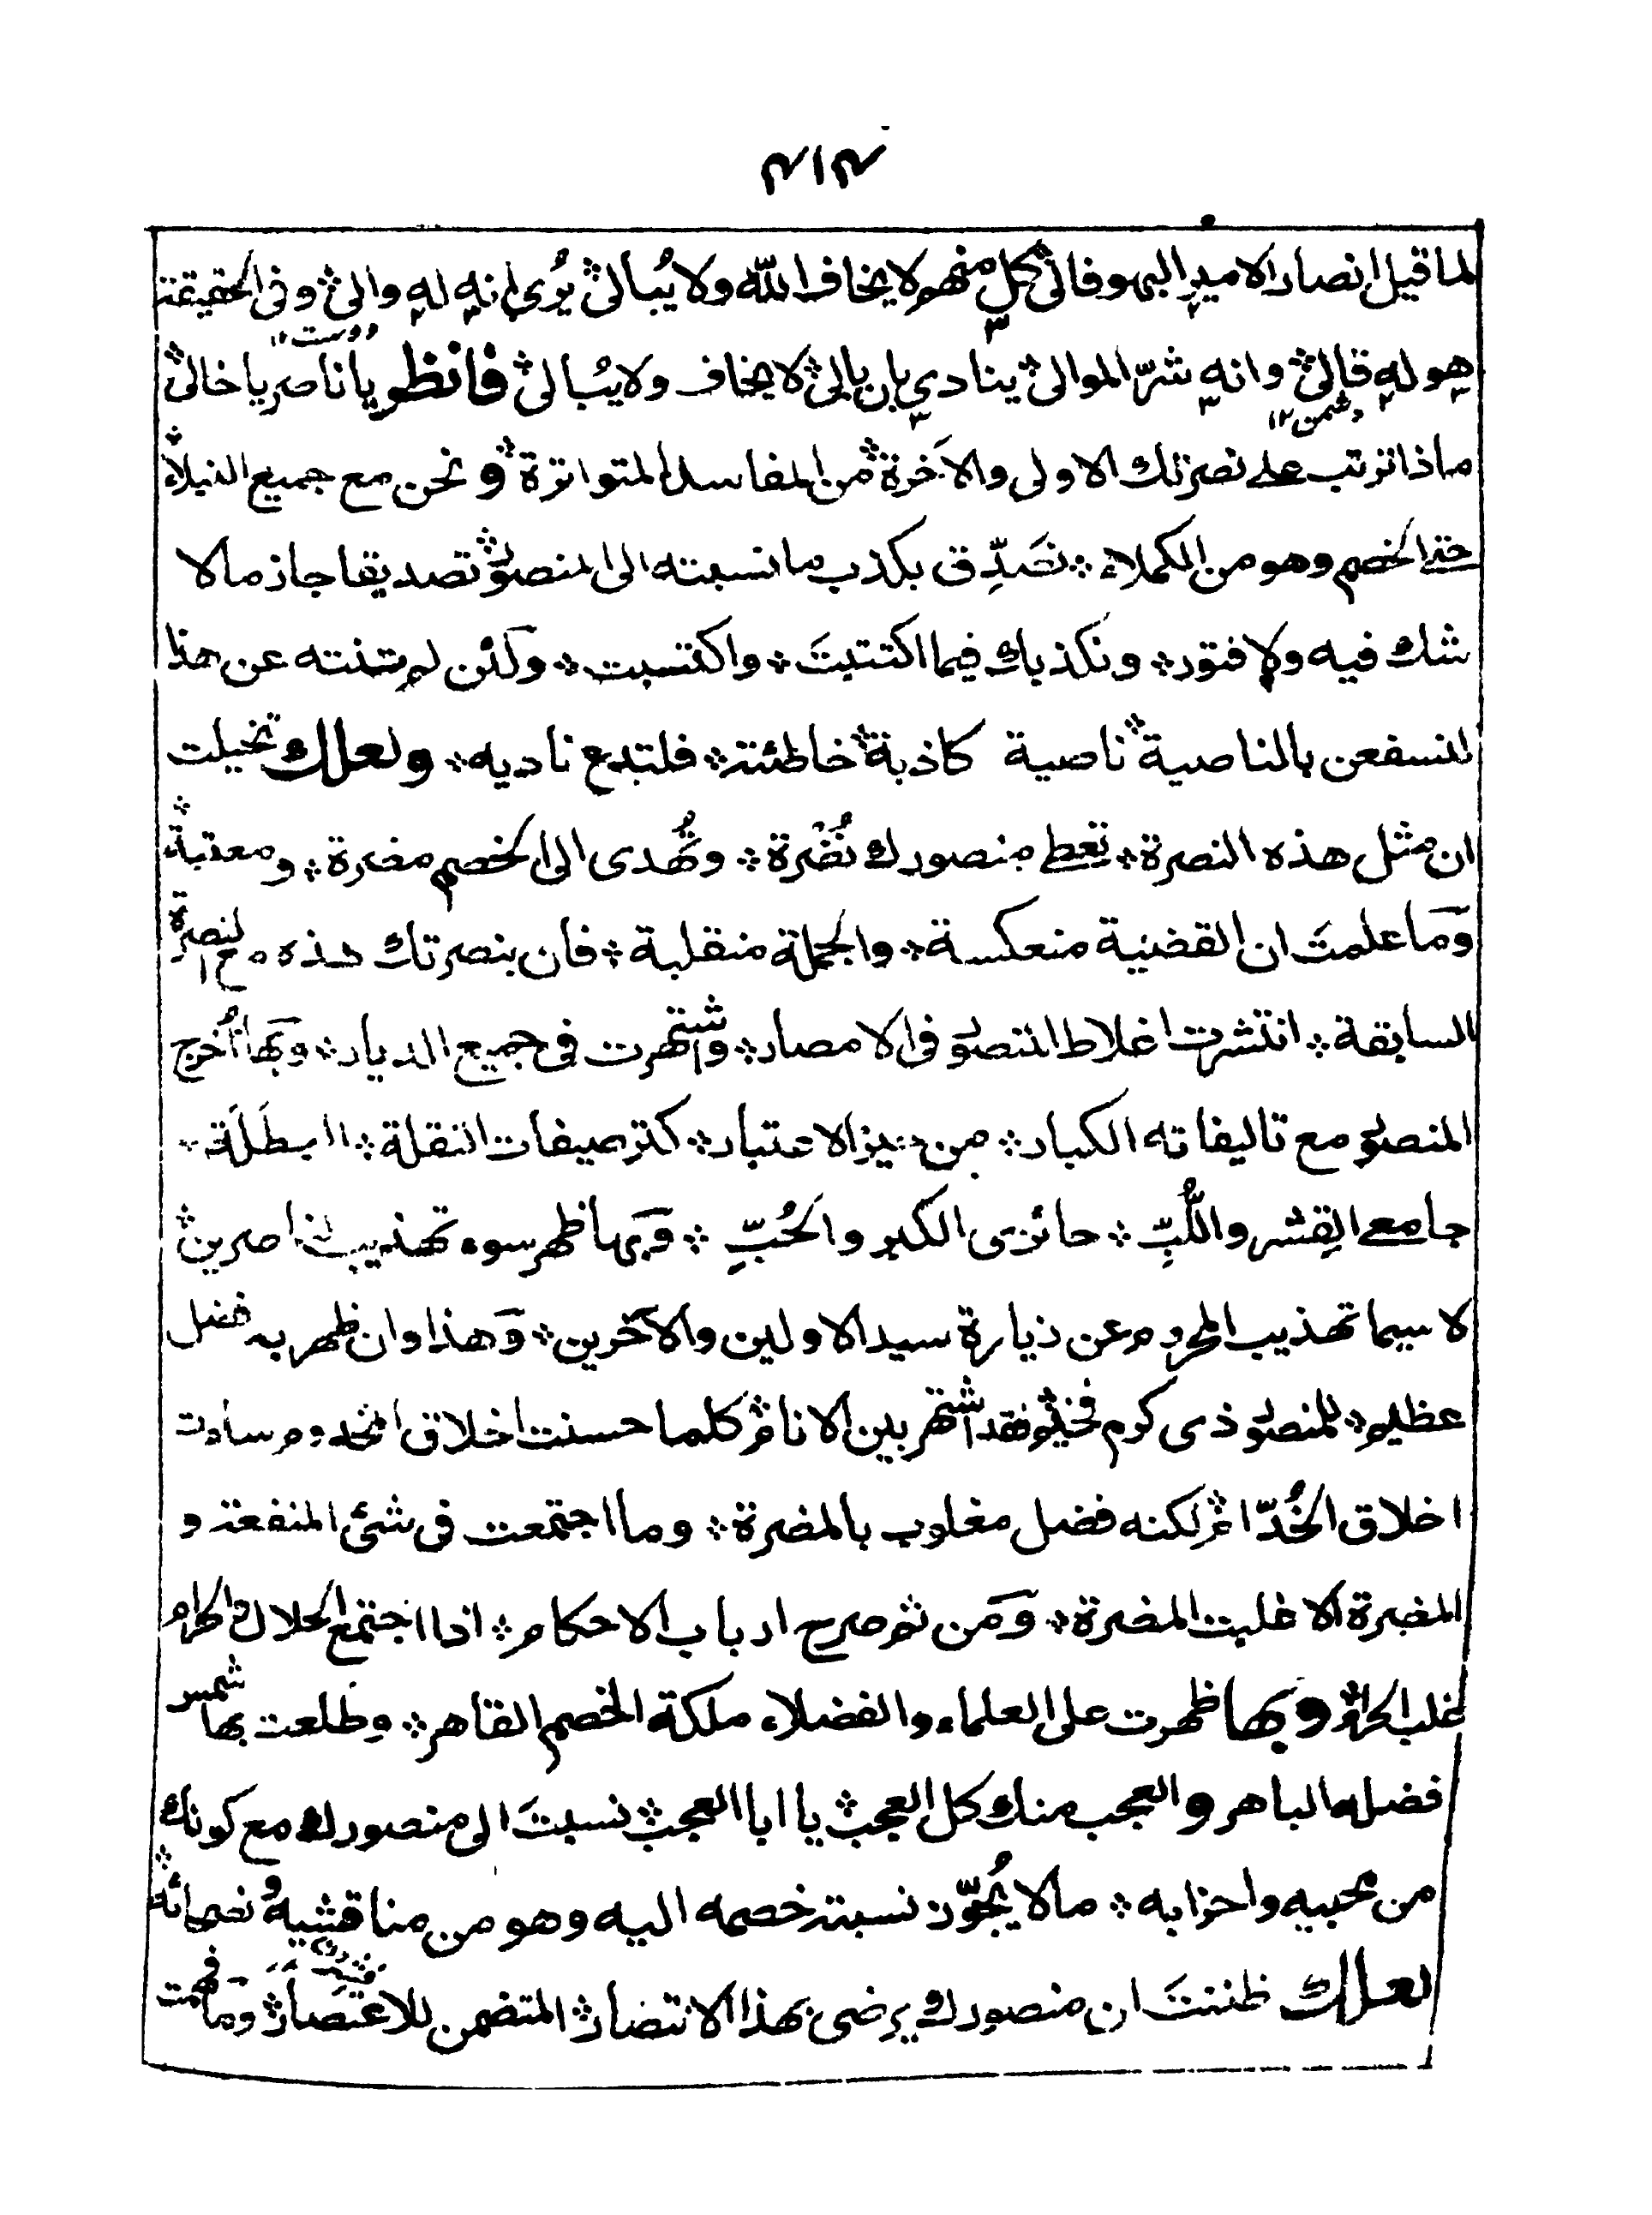 ۴۱۴
لما قيل انصار الامير البهوفالى كل منهم لا يخاف الله ولا يُبالى يُرى انه له والى وفى الحقيقة
دوست ۱۲
هو له قالى وانه شرّ الموالى ينادى بان بالى لا يخاف ولا يبالى فانظر يا ناصر يا خالى
دشمن ۱۲
ماذا ترتب على نصرتك الاولى والاخرة من المفاسد المتواترة و نحن مع جميع النبلاء
حتى الخصم وهو من الكملاء نصَدِّق بكذب ما نسبته الى المنصور تصديقا جازما لا
شك فيه ولا فتور ونكذبك فيما اكتتبتَ واكتسبت ولَئن لم تنته عن هذا
لنسفعن بالناصية ناصية كاذبة خاطئة فلتدع ناديه ولعلك تخيلت
ان مثل هذه النصرة تعطى منصورك نُضرة وتُهدى الى الخصم مضرة ومعتبة
وَما علمتَ ان القضية منعكسة والجملة منقلبة فان بنصرتك هذه مع النصرة
السابقة انتشرت اغلاط المنصور فى الامصار واشتهرت فى جميع الديار وبها اُخرج
المنصور مع تاليفاته الكبار من حيز الاعتبار كترصيفات النقلة البطَلَة
جامعى القِشر واللُّبِّ حائزى الكبر والحُبِّ وَبها ظهر سوء تهذيب الناصرين
لا سيما تهذيب المحروم عن زيارة سيد الاولين والآخرين وَهذا وان ظهر به فضل
عظيم للمنصور ذى كرم فخيم فقد اشتهر بين الانام كلما حسنت اخلاق المخدوم ساءت
اخلاق الخُدّام لكنه فضل مغلوب بالمضرة وما اجتمعت فى شئ المنفعة و
المضرة الا غلبت المضرة وَمن ثم صرح ارباب الاحكام اذا اجتمع الحلال والحرام
غلب الحرام وبها ظهرت على العلماء والفضلاء ملكة الخصم القاهر وطلعت بها شمس
فضله الباهر والعجب منك كل العجب يا ابا العجب نسبتَ الى منصورك مع كونك
من محبيه واحزابه مالا يُجوّز نسبته خصمه اليه وهو من مناقشيه
لعلك ظننتَ ان منصورك يرضى بهذا الانتصار المتضمن للاعتصار وَما فهمت